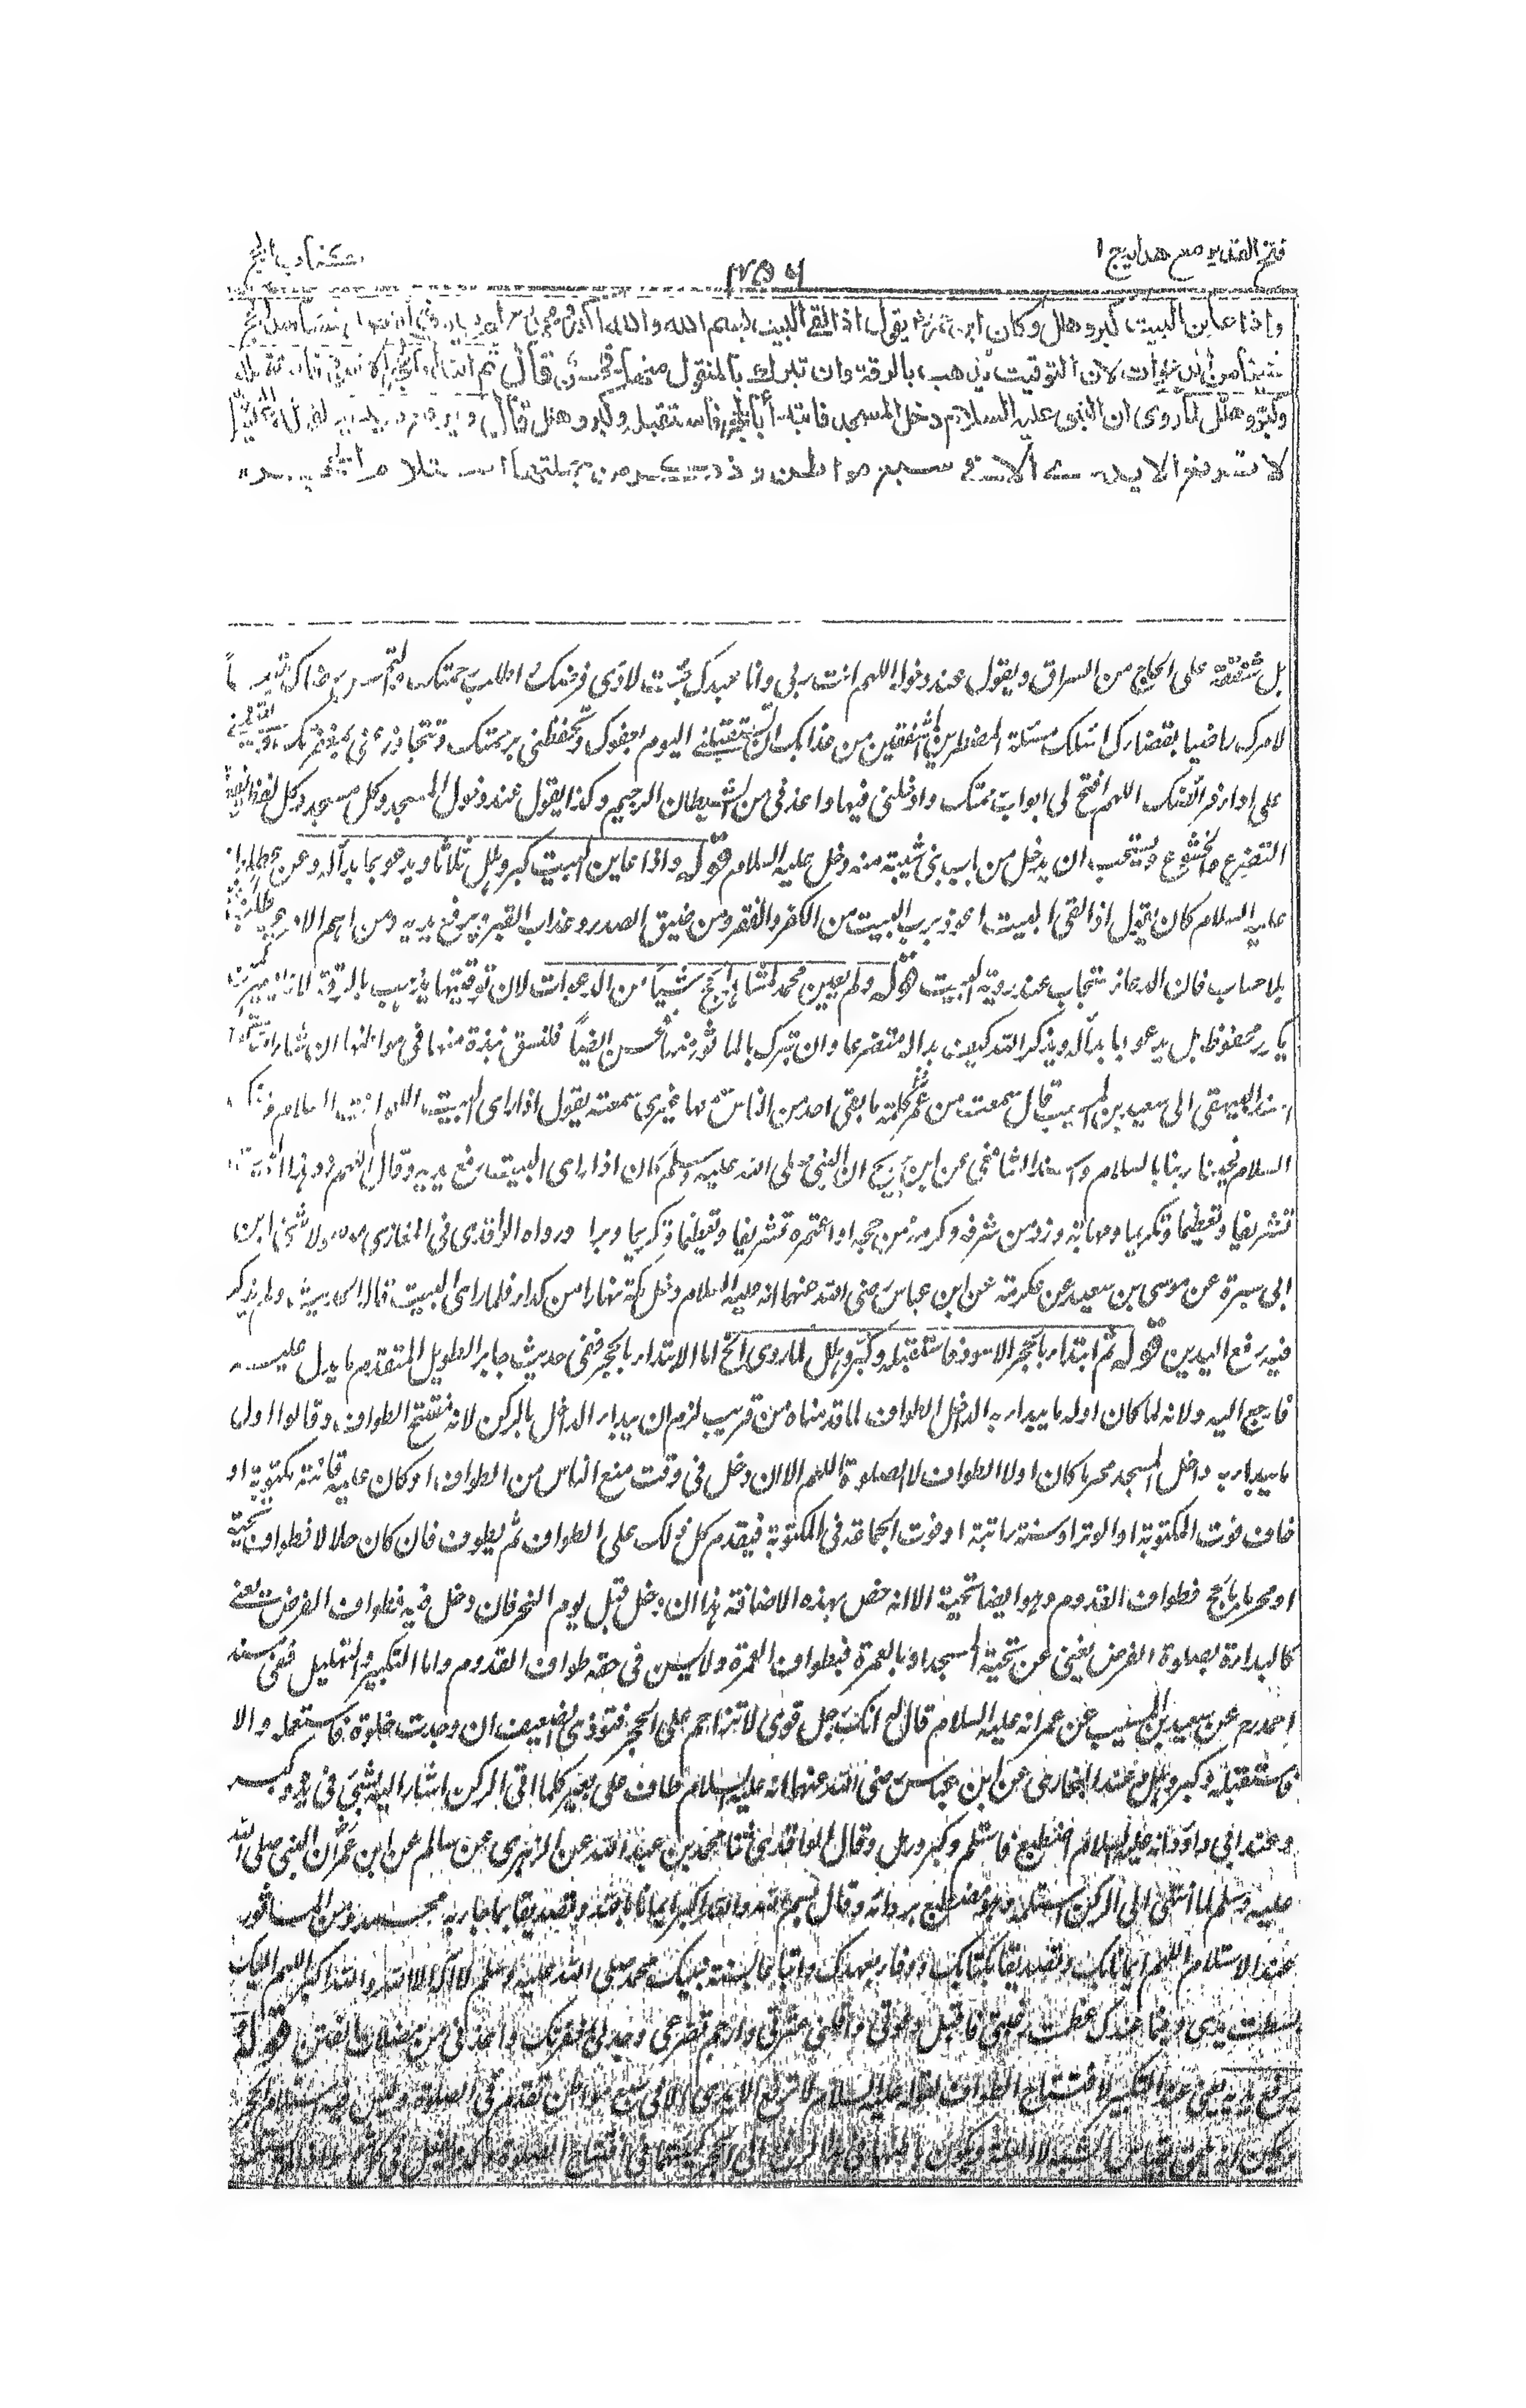 فتح القدير مع هدايه ج ١
٣٥٦
كتاب الحج
واذا عاين البيت كبر وهلل وكان ابن عمر يقول اذا لقى البيت بسم الله والله اكبر ومحمد
شيئا من الدعوات لان التوقيت يذهب بالرقة وان تبرك بالمنقول منها فحسن قال ثم ابتدأ بالحجر الاسود فاستقبله
وكبر وهلل لما روى ان النبى عليه السلام دخل المسجد فابتدأ بالحجر فاستقبله وكبر وهلل قال ويرفع يديه لقوله عليه السلام
لا ترفع الايدى الا فى سبع مواطن وذكر من جملتها استلام الحجر
بل شفقة على الحاج من السراق ويقول عند دخوله اللهم انت ربى وانا عبدك جئت لاودى فرضك واطلب رحمتك والتمس رضاك متبعاً
لامرك راضيا بقضائك اسئلك مسئلة المضطرين المشفقين من عذابك ان تستقبلنى اليوم بعفوك وتحفظنى برحمتك وتتجاوز عنى بمغفرتك وتعيننى
على اداء فرائضك اللهم افتح لى ابواب رحمتك وادخلنى فيها واعذنى من الشيطان الرجيم وكذا يقول عند دخول المسجد وكل مسجد وكل لفظ يقع به
التضرع والخشوع ويستحب ان يدخل من باب بنى شيبة منه دخل عليه السلام قوله واذا عاين البيت كبر وهلل ثلاثا ويدعو بما بدأ له وعن عطاء انه
عليه السلام كان يقول اذا لقى البيت اعوذ برب البيت من الكفر والفقر ومن ضيق الصدر وعذاب القبر ويرفع يديه ومن اهم الادعية طلب الجنة
بلا حساب فان الدعاء مستجاب عند روية البيت قوله ولم يعين محمد لمشاهد الحج شيئاً من الدعوات لان توقيتها يذهب بالرقة لانه يصير كمن
يكرر محفوظه بل يدعو بما بدأ له ويذكر الله كيف بدا له متضرعا وان تبرك بالماثور منها فحسن ايضاً فلنسق نبذة منها فى مواطنها ان شاء الله تعالى
اسند البيهقى الى سعيد بن المسيب قال سمعت من عمر كلمة ما بقى احد من الناس سمعها غيرى سمعته يقول اذا راى البيت اللهم انت السلام ومنك
السلام فحينا ربنا بالسلام واسند الشافعى عن ابن جريج ان النبى صلى الله عليه وسلم كان اذا راى البيت رفع يديه وقال اللهم زد هذا البيت
تشريفا وتعظيما وتكريما ومهابة وزد من شرفه وكرمه ممن حجه او اعتمره تشريفا وتعظيما وتكريما وبرا ورواه الواقدى فى المغازى موصولا ثنى ابن
ابى سبرة عن موسى بن سعيد عن عكرمة عن ابن عباس رضى الله عنهما انه عليه السلام دخل مكة نهارا من كداء فلما راى البيت قال الحديث ولم يذكر
فيه رفع اليدين قوله ثم ابتداء بالحجر الاسود فاستقبله وكبر وهلل لما روى الخ اما الابتداء بالحجر ففى حديث جابر الطويل المتقدم ما يدل عليه
فارجع اليه ولانه لما كان اول ما يبداء به الداخل الطواف لما قدمناه من قريب لزم ان يبداء الداخل بالركن لانه مفتتح الطواف وقالوا اول
ما يبداء به داخل المسجد محرما كان او لا الطواف لا الصلوة اللهم الا ان دخل فى وقت منع الناس من الطواف او كان عليه فائتة مكتوبة او
خاف فوت المكتوبة او الوتر او سنة راتبة او فوت الجماعة فى المكتوبة فيقدم كل ذلك على الطواف ثم يطوف فان كان حلالا فطواف تحية
او محرما بالحج فطواف القدوم وهو ايضا تحية الا انه خص بهذه الاضافة هذا ان دخل قبل يوم النحر فان دخل فيه فطواف الفرض يغنى
كالبداءة بصلوة الفرض يغنى عن تحية المسجد او بالعمرة فبطواف العمرة ولا يسن فى حقه طواف القدوم واما التكبير والتهليل ففى مسند
احمد رح عن سعيد بن المسيب عن عمر انه عليه السلام قال له انك رجل قوى لا تزاحم على الحجر فتوذى الضعيف ان وجدت خلوة فاستلمه والا
فاستقبله وكبر وهلل وعند البخارى عن ابن عباس رضى الله عنهما انه عليه السلام طاف على بعير كلما اتى الركن اشار اليه بشئ فى يده وكبر
وعند ابى داود انه عليه السلام اضطبع فاستلم وكبر ورمل وقال الواقدى ثنا محمد بن عبد الله عن الزهرى عن سالم عن ابن عمر ان النبى صلى الله
عليه وسلم لما انتهى الى الركن استلمه وهو مضطبع بردائه وقال بسم الله والله اكبر ايمانا بالله وتصديقا بما جاء به محمد ومن الماثور
عند الاستلام اللهم ايمانا بك وتصديقا بكتابك ووفاء بعهدك واتباعا لسنة نبيك محمد صلى الله عليه وسلم لا اله الا الله والله اكبر اللهم اليك
بسطت يدى وفيما عندك عظمت رغبتى فاقبل دعوتى واقلنى عثرتى وارحم تضرعى وجد لى بمغفرتك واعذنى من مضلات الفتن قوله
ويرفع يديه يعنى عند التكبير لافتتاح الطواف لقوله عليه السلام لا ترفع الايدى الا فى سبع مواطن تقدم فى الصلوة وليس فيه استلام الحجر